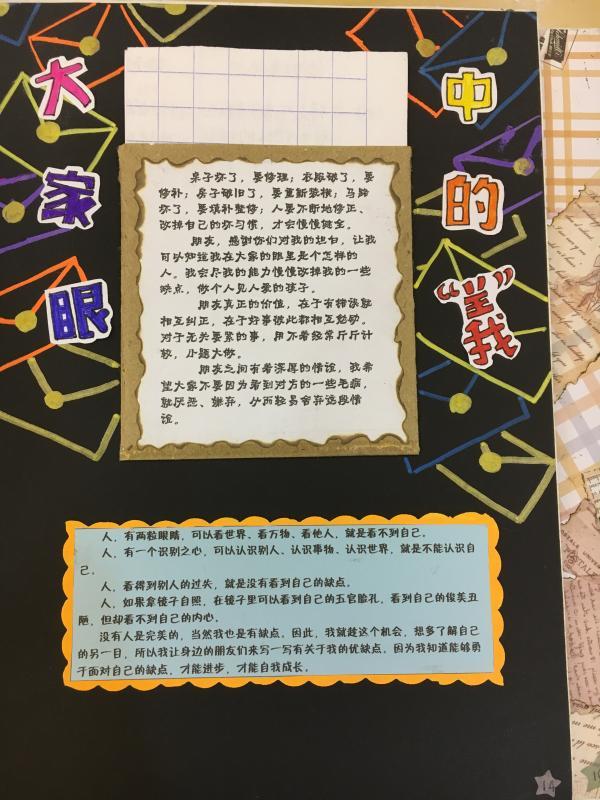 大家眼
中的“ ”我
桌子坏了，要修理；衣服破了，要
修补；房子破旧了，要重新装横；马路
坏了，要填补整修；人要不断地修正、
改掉自己的坏习惯，才会慢慢健全。
朋友，感谢你们对我的坦白，让我
可以知道我在大家的眼里是个怎样的
人。我会尽我的能力慢慢改掉我的一些
缺点，做个人见人爱的孩子。
朋友真正的价值，在于有错误能
相互纠正，在于好事彼此都相互勉励。
对于无关要紧的事，用不着经常斤斤计
较，小题大做。
朋友之间有着深厚的情谊，我希
望大家不要因为看到对方的一些毛病，
就厌恶、嫌弃，从而轻易舍弃这段情
谊。
人，有两粒眼睛，可以看世界、看万物、看他人，就是看不到自己。
人，有一个识别之心，可以认识别人、认识事物、认识世界，就是不能认识自
己。
人，看得到别人的过失，就是没有看到自己的缺点。
人，如果拿镜子自照，在镜子里可以看到自己的五官脸孔，看到自己的俊美丑
陋，但却看不到自己的内心。
没有人是完美的，当然我也是有缺点。因此，我就趁这个机会，想多了解自己
的另一目，所以我让身边的朋友们来写一写有关于我的优缺点。因为我知道能够勇
于面对自己的缺点，才能进步，才能自我成长。
14